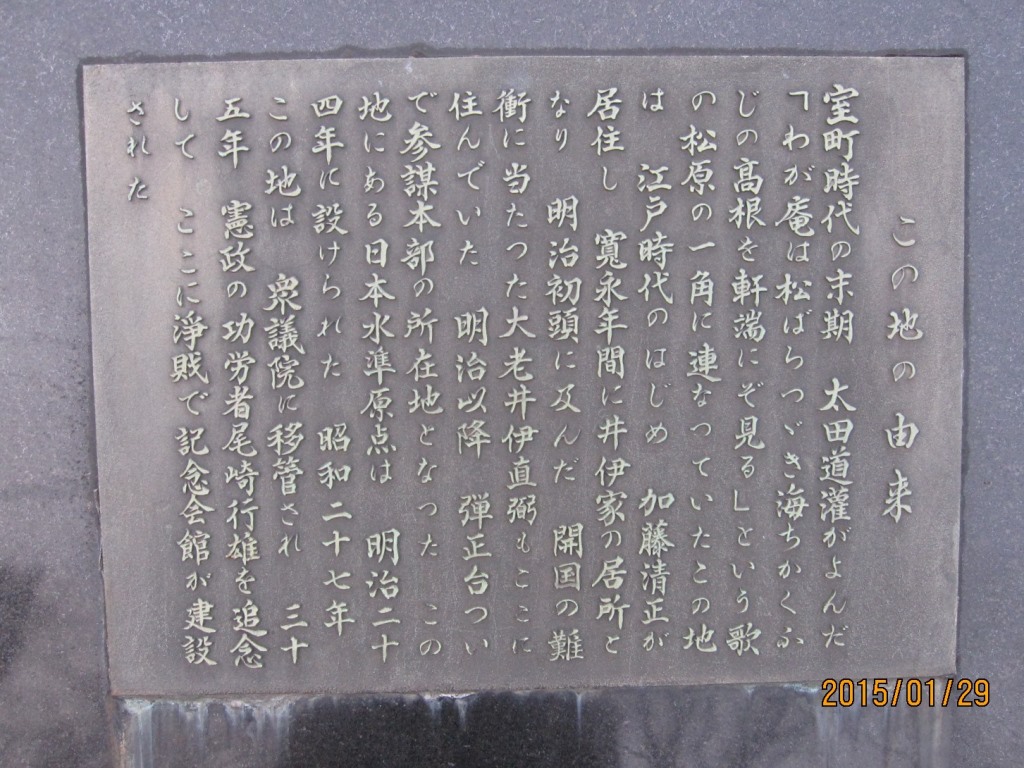 この地の由来
室町時代の末期　太田道灌がよんだ
「わが庵は松ばらつゞき海ちかくふ
じの髙根を軒端にぞ見る」という歌
の松原の一角に連なっていたこの地
は　江戸時代のはじめ　加藤清正が
居住し　寛永年間に井伊家の居所と
なり　明治初頭に及んだ　開国の難
衝に当たつた大老井伊直弼もここに
住んでいた　明治以降　弾正台つい
で参謀本部の所在地となつた　この
地にある日本水準原点は　明治二十
四年に設けられた　昭和二十七年
この地は　衆議院に移管され　三十
五年　憲政の功労者尾崎行雄を追念
して　ここに淨戝で記念会館が建設
された
2015/01/29